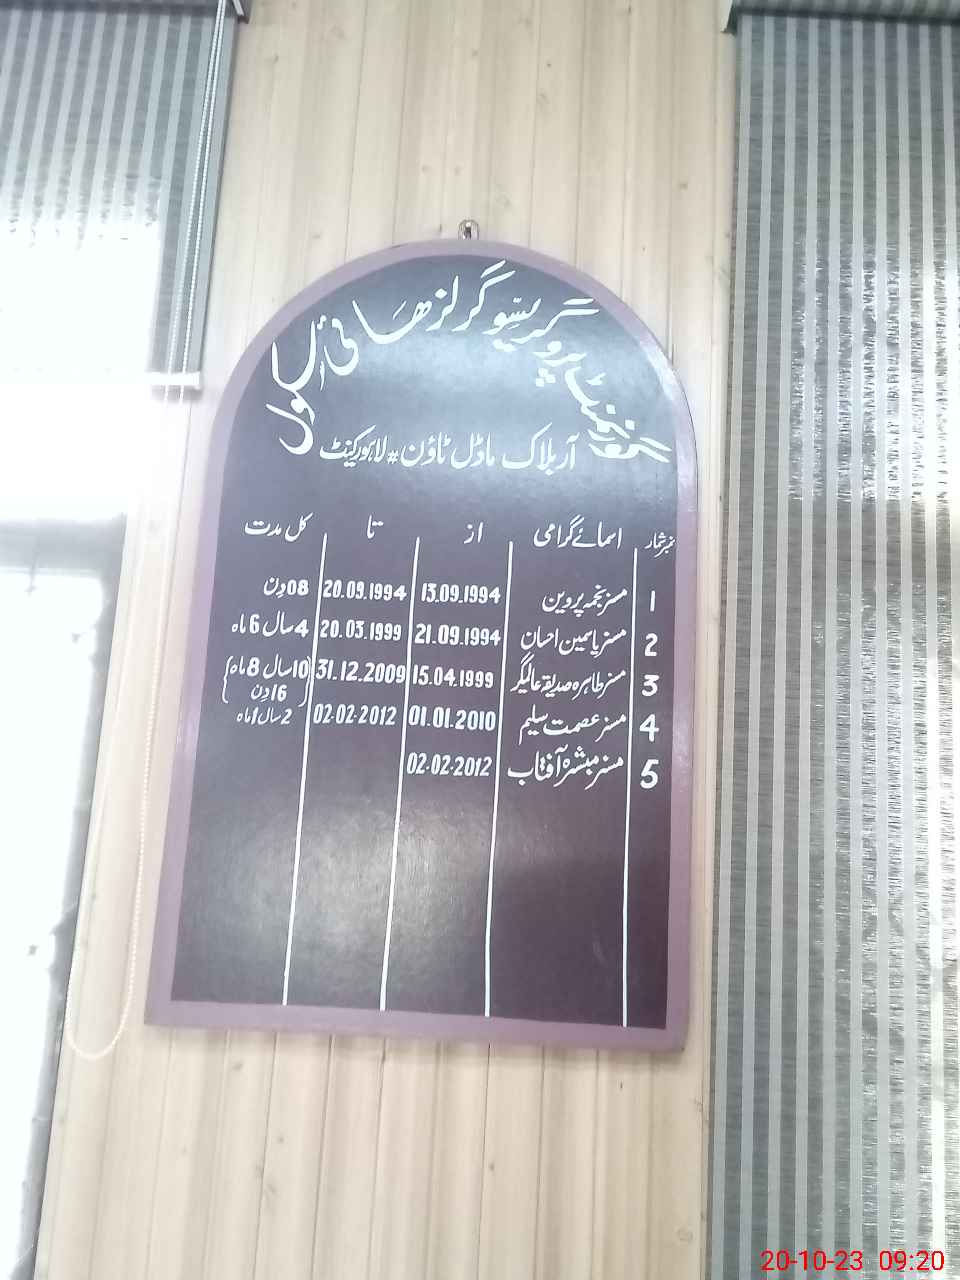 گورنمنٹ پروگریسیو گرلز ھائی اسکول
آر بلاک ماڈل ٹاؤن # لاہور کینٹ
نمبر شمار اسمائے گرامی از تا کل مدت
1 مسز نجمہ پروین 13.09.1994 20.09.1994 08 دِن
2 مسز یاسمین احسان 21.09.1994 20.03.1999 4 سال 6 ماہ
3 مسز طاہرہ صدیقہ عالمگیر 15.04.1999 31.12.2009 {10 سال 8 ماہ
16 دِن}
4 مسز عصمت سلیم 01.01.2010 02-02-2012 2 سال 1 ماہ
5 مسز مبشرہ آفتاب 02-02-2012
20-10-23 09:20